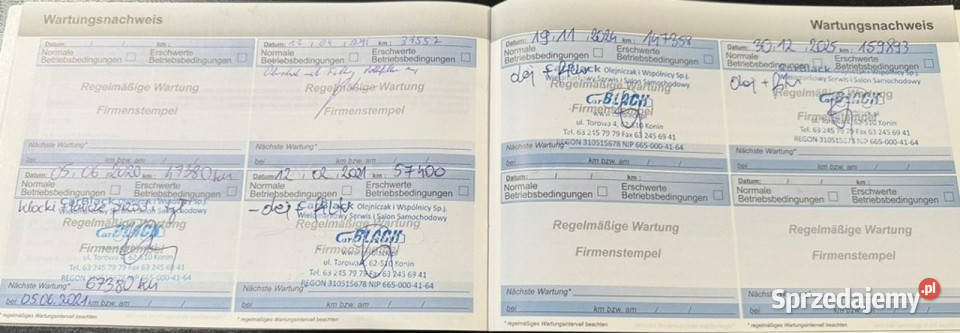 Wartungsnachweis
Datum: / / km:
Normale Betriebsbedingungen
Erschwerte Betriebsbedingungen
Regelmäßige Wartung
Firmenstempel
Nächste Wartung*
bei km bzw. am / /
Datum: km: 37557
Normale Betriebsbedingungen
Erschwerte Betriebsbedingungen
Regelmäßige Wartung
Firmenstempel
Nächste Wartung*
bei km bzw. am / /
Datum: 05.06.2020 km: 47380 km
Normale Betriebsbedingungen
Erschwerte Betriebsbedingungen
Klocki
Regelmäßige Wartung
CarBLACK
Firmenstempel
ul. Torowa 4, 62-510 Konin
Tel. 63 245 79 79 Fax 63 245 69 41
REGON 310515678 NIP 665-000-41-64
Nächste Wartung* 67380 km
bei 05.06.2021 km bzw. am / /
* regelmäßiges Wartungsintervall beachten
Datum: 12 02 2021 km: 57400
Normale Betriebsbedingungen
Erschwerte Betriebsbedingungen
- olej
CarBlack Olejniczak i Wspólnicy Sp.j.
Wielobranżowy Serwis i Salon Samochodowy
Regelmäßige Wartung
CarBLACK
Firmenstempel
ul. Torowa 4, 62-510 Konin
Tel. 63 245 79 79 Fax 63 245 69 41
REGON 310515678 NIP 665-000-41-64
Nächste Wartung*
bei km bzw. am / /
Wartungsnachweis
Datum: 19.11.2024 km: 147358
Normale Betriebsbedingungen
Erschwerte Betriebsbedingungen
olej +
CarBlack Olejniczak i Wspólnicy Sp.j.
Wielobranżowy Serwis i Salon Samochodowy
Regelmäßige Wartung
CarBLACK
Firmenstempel
ul. Torowa 4, 62-510 Konin
Tel. 63 245 79 79 Fax 63 245 69 41
REGON 310515678 NIP 665-000-41-64
Nächste Wartung*
bei km bzw. am / /
Datum: 30.12.2025 km: 159893
Normale Betriebsbedingungen
Erschwerte Betriebsbedingungen
olej +
CarBlack
Serwis i Salon Samochodowy
Regelmäßige Wartung
CarBLACK
Firmenstempel
ul. Torowa 4, 62-510 Konin
Tel. 63 245 79 79 Fax 63 245 69 41
REGON 310515678 NIP 665-000-41-64
Nächste Wartung*
bei km bzw. am / /
Datum: / / km:
Normale Betriebsbedingungen
Erschwerte Betriebsbedingungen
Regelmäßige Wartung
Firmenstempel
Nächste Wartung*
bei km bzw. am / /
* regelmäßiges Wartungsintervall beachten
Datum: / / km:
Normale Betriebsbedingungen
Erschwerte Betriebsbedingungen
Regelmäßige Wartung
Firmenstempel
Nächste Wartung*
bei km bzw. am
Sprzedajemy.pl